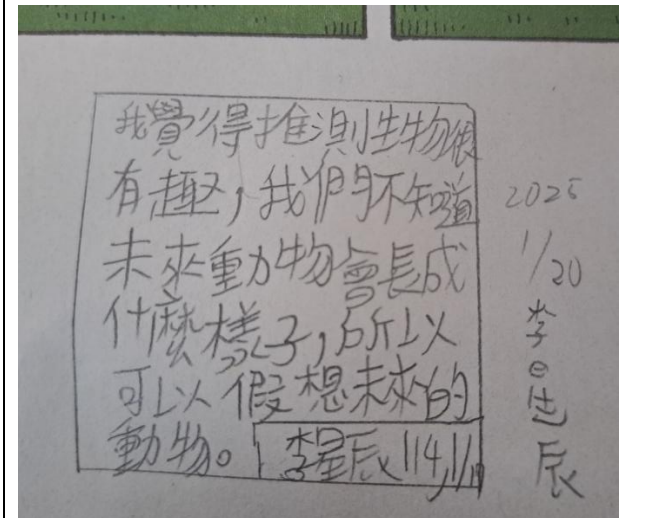 我覺得推測生物很
有趣，我們不知道
未來動物會長成
什麼樣子，所以
可以假想未來的
動物。
李星辰 114,1/19
2025
1/20
李星辰